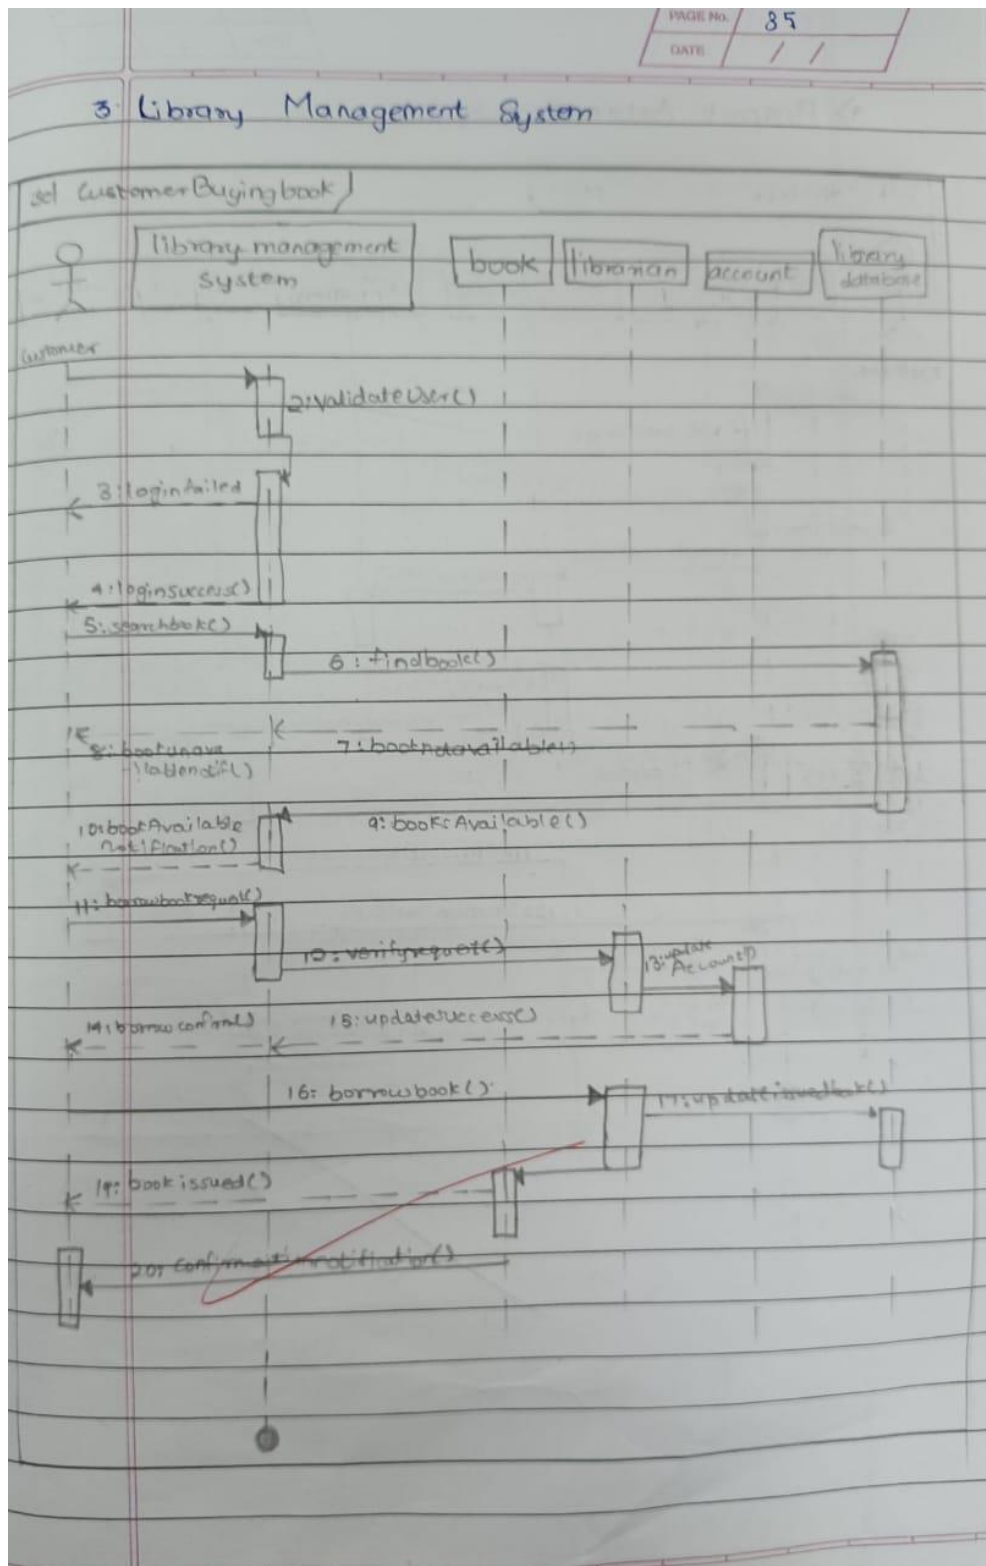 PAGE No. 85
DATE / /
3. Library Management System
sd CustomerBuyingbook
library management
system
book
librarian
account
library
database
Customer
2:validateUser()
3:loginfailed
4:loginsuccess()
5:searchbook()
6: findbook()
7:booknotavailable()
8:bookunava
ilablenotif()
9: booksAvailable()
10:bookAvailable
notification()
11: borrowbookrequest()
12: verifyrequest()
13:update
Account()
14:borrowconfirm()
15:updatesuccess()
16: borrowbook()
17:updateissuedbook()
19: book issued()
20: confirmationnotification()